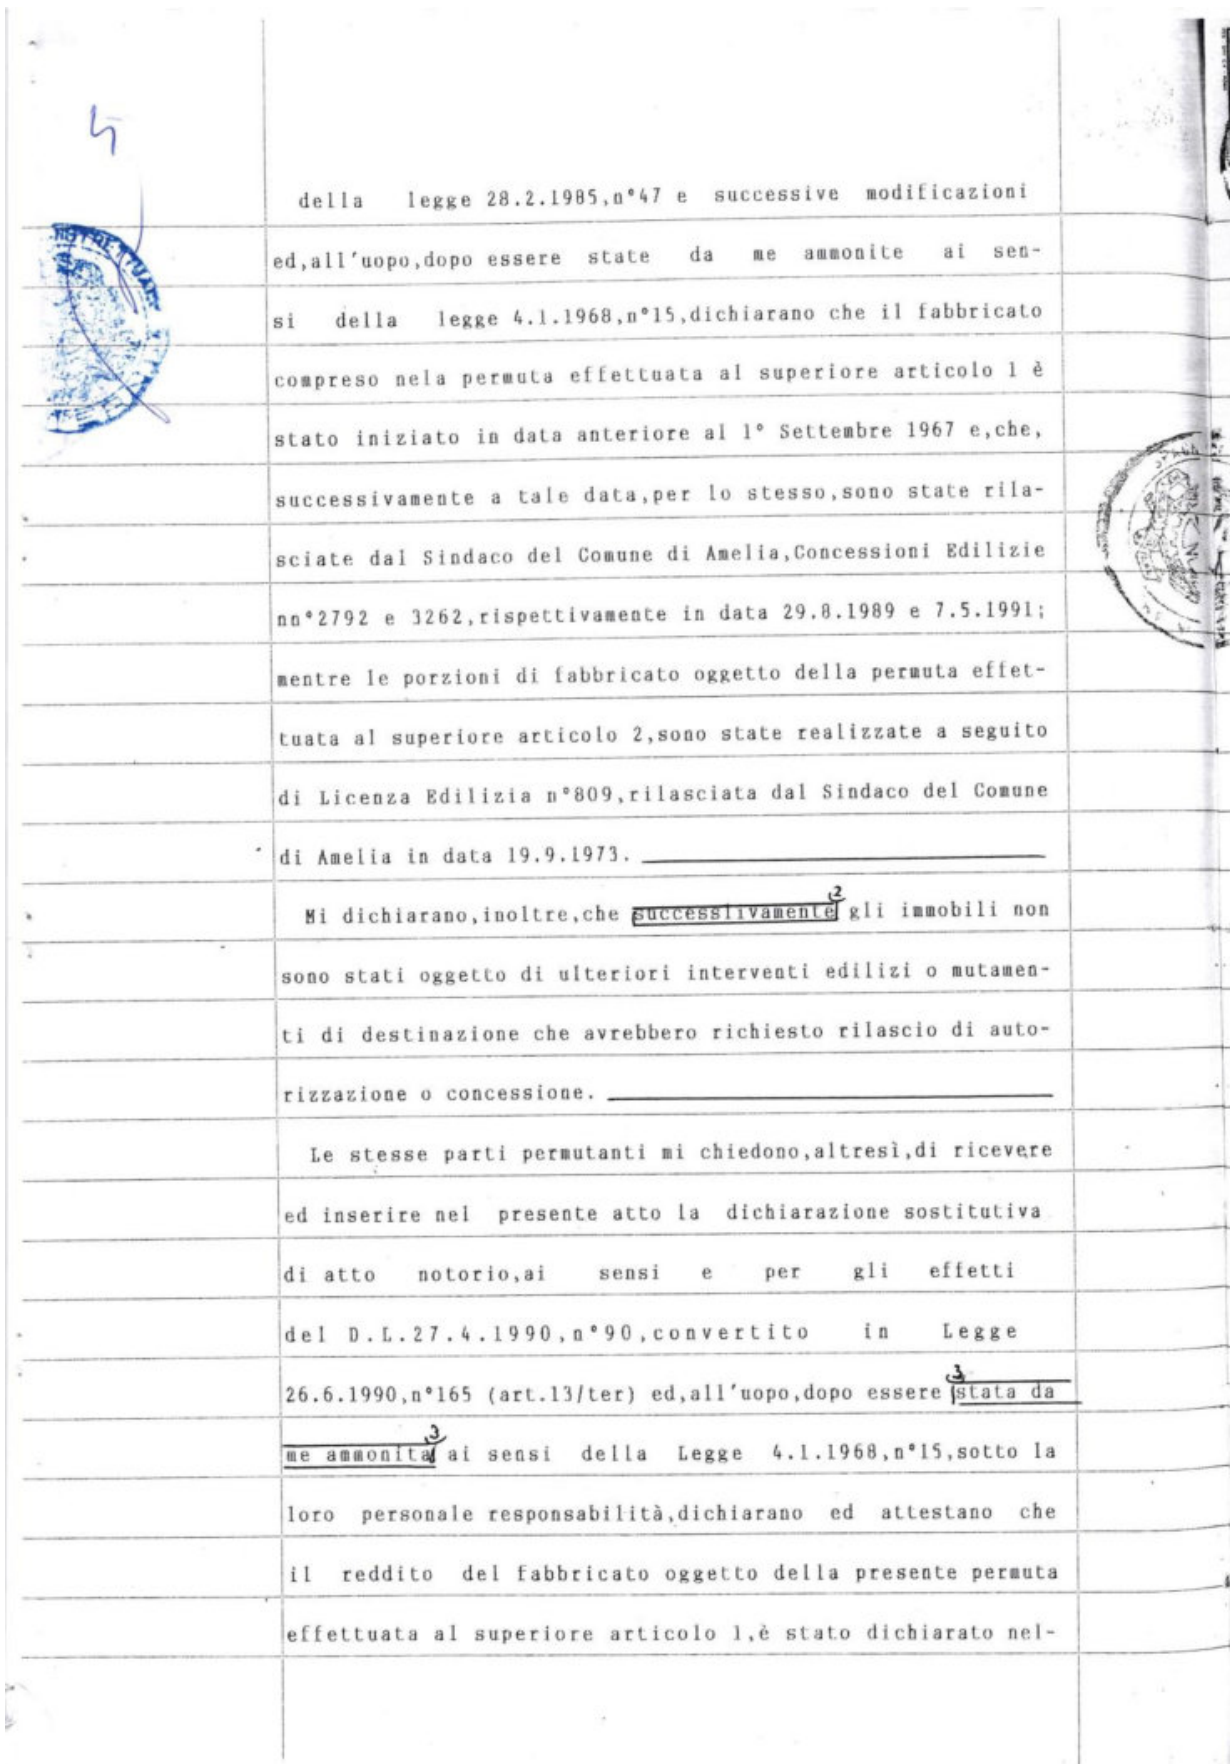 5
della legge 28.2.1985,n°47 e successive modificazioni
ed,all'uopo,dopo essere state da me ammonite ai sen-
si della legge 4.1.1968,n°15,dichiarano che il fabbricato
compreso nela permuta effettuata al superiore articolo 1 è
stato iniziato in data anteriore al 1° Settembre 1967 e,che,
successivamente a tale data,per lo stesso,sono state rila-
sciate dal Sindaco del Comune di Amelia,Concessioni Edilizie
nn°2792 e 3262,rispettivamente in data 29.8.1989 e 7.5.1991;
mentre le porzioni di fabbricato oggetto della permuta effet-
tuata al superiore articolo 2,sono state realizzate a seguito
di Licenza Edilizia n°809,rilasciata dal Sindaco del Comune
di Amelia in data 19.9.1973.
Mi dichiarano,inoltre,che successivamente 2 gli immobili non
sono stati oggetto di ulteriori interventi edilizi o mutamen-
ti di destinazione che avrebbero richiesto rilascio di auto-
rizzazione o concessione.
Le stesse parti permutanti mi chiedono,altresì,di ricevere
ed inserire nel presente atto la dichiarazione sostitutiva
di atto notorio,ai sensi e per gli effetti
del D.L.27.4.1990,n°90,convertito in Legge
26.6.1990,n°165 (art.13/ter) ed,all'uopo,dopo essere 3 stata da
me ammonita 3 ai sensi della Legge 4.1.1968,n°15,sotto la
loro personale responsabilità,dichiarano ed attestano che
il reddito del fabbricato oggetto della presente permuta
effettuata al superiore articolo 1,è stato dichiarato nel-